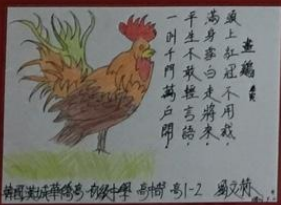 畫鷄
頭上紅冠不用裁，
滿身雪白走將來，
平生不敢輕言語，
一叫千門萬戶開。
韓國漢城華僑高級中學 高中部 高1-2